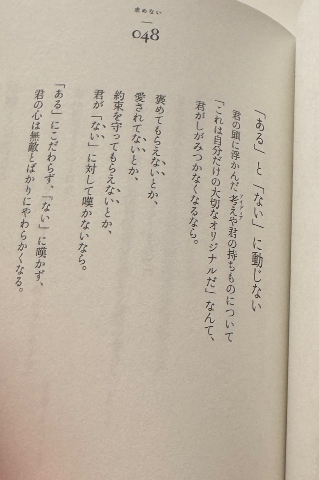 求めない
048
「ある」と「ない」に動じない
君の頭に浮かんだ考えや君の持ちものについて
アイディア
「これは自分だけの大切なオリジナルだ」なんて、
君がしがみつかなくなるなら。
褒めてもらえないとか、
愛されてないとか、
約束を守ってもらえないとか、
君が「ない」に対して嘆かないなら。
「ある」にこだわらず、「ない」に嘆かず、
君の心は無敵とばかりにやわらかくなる。